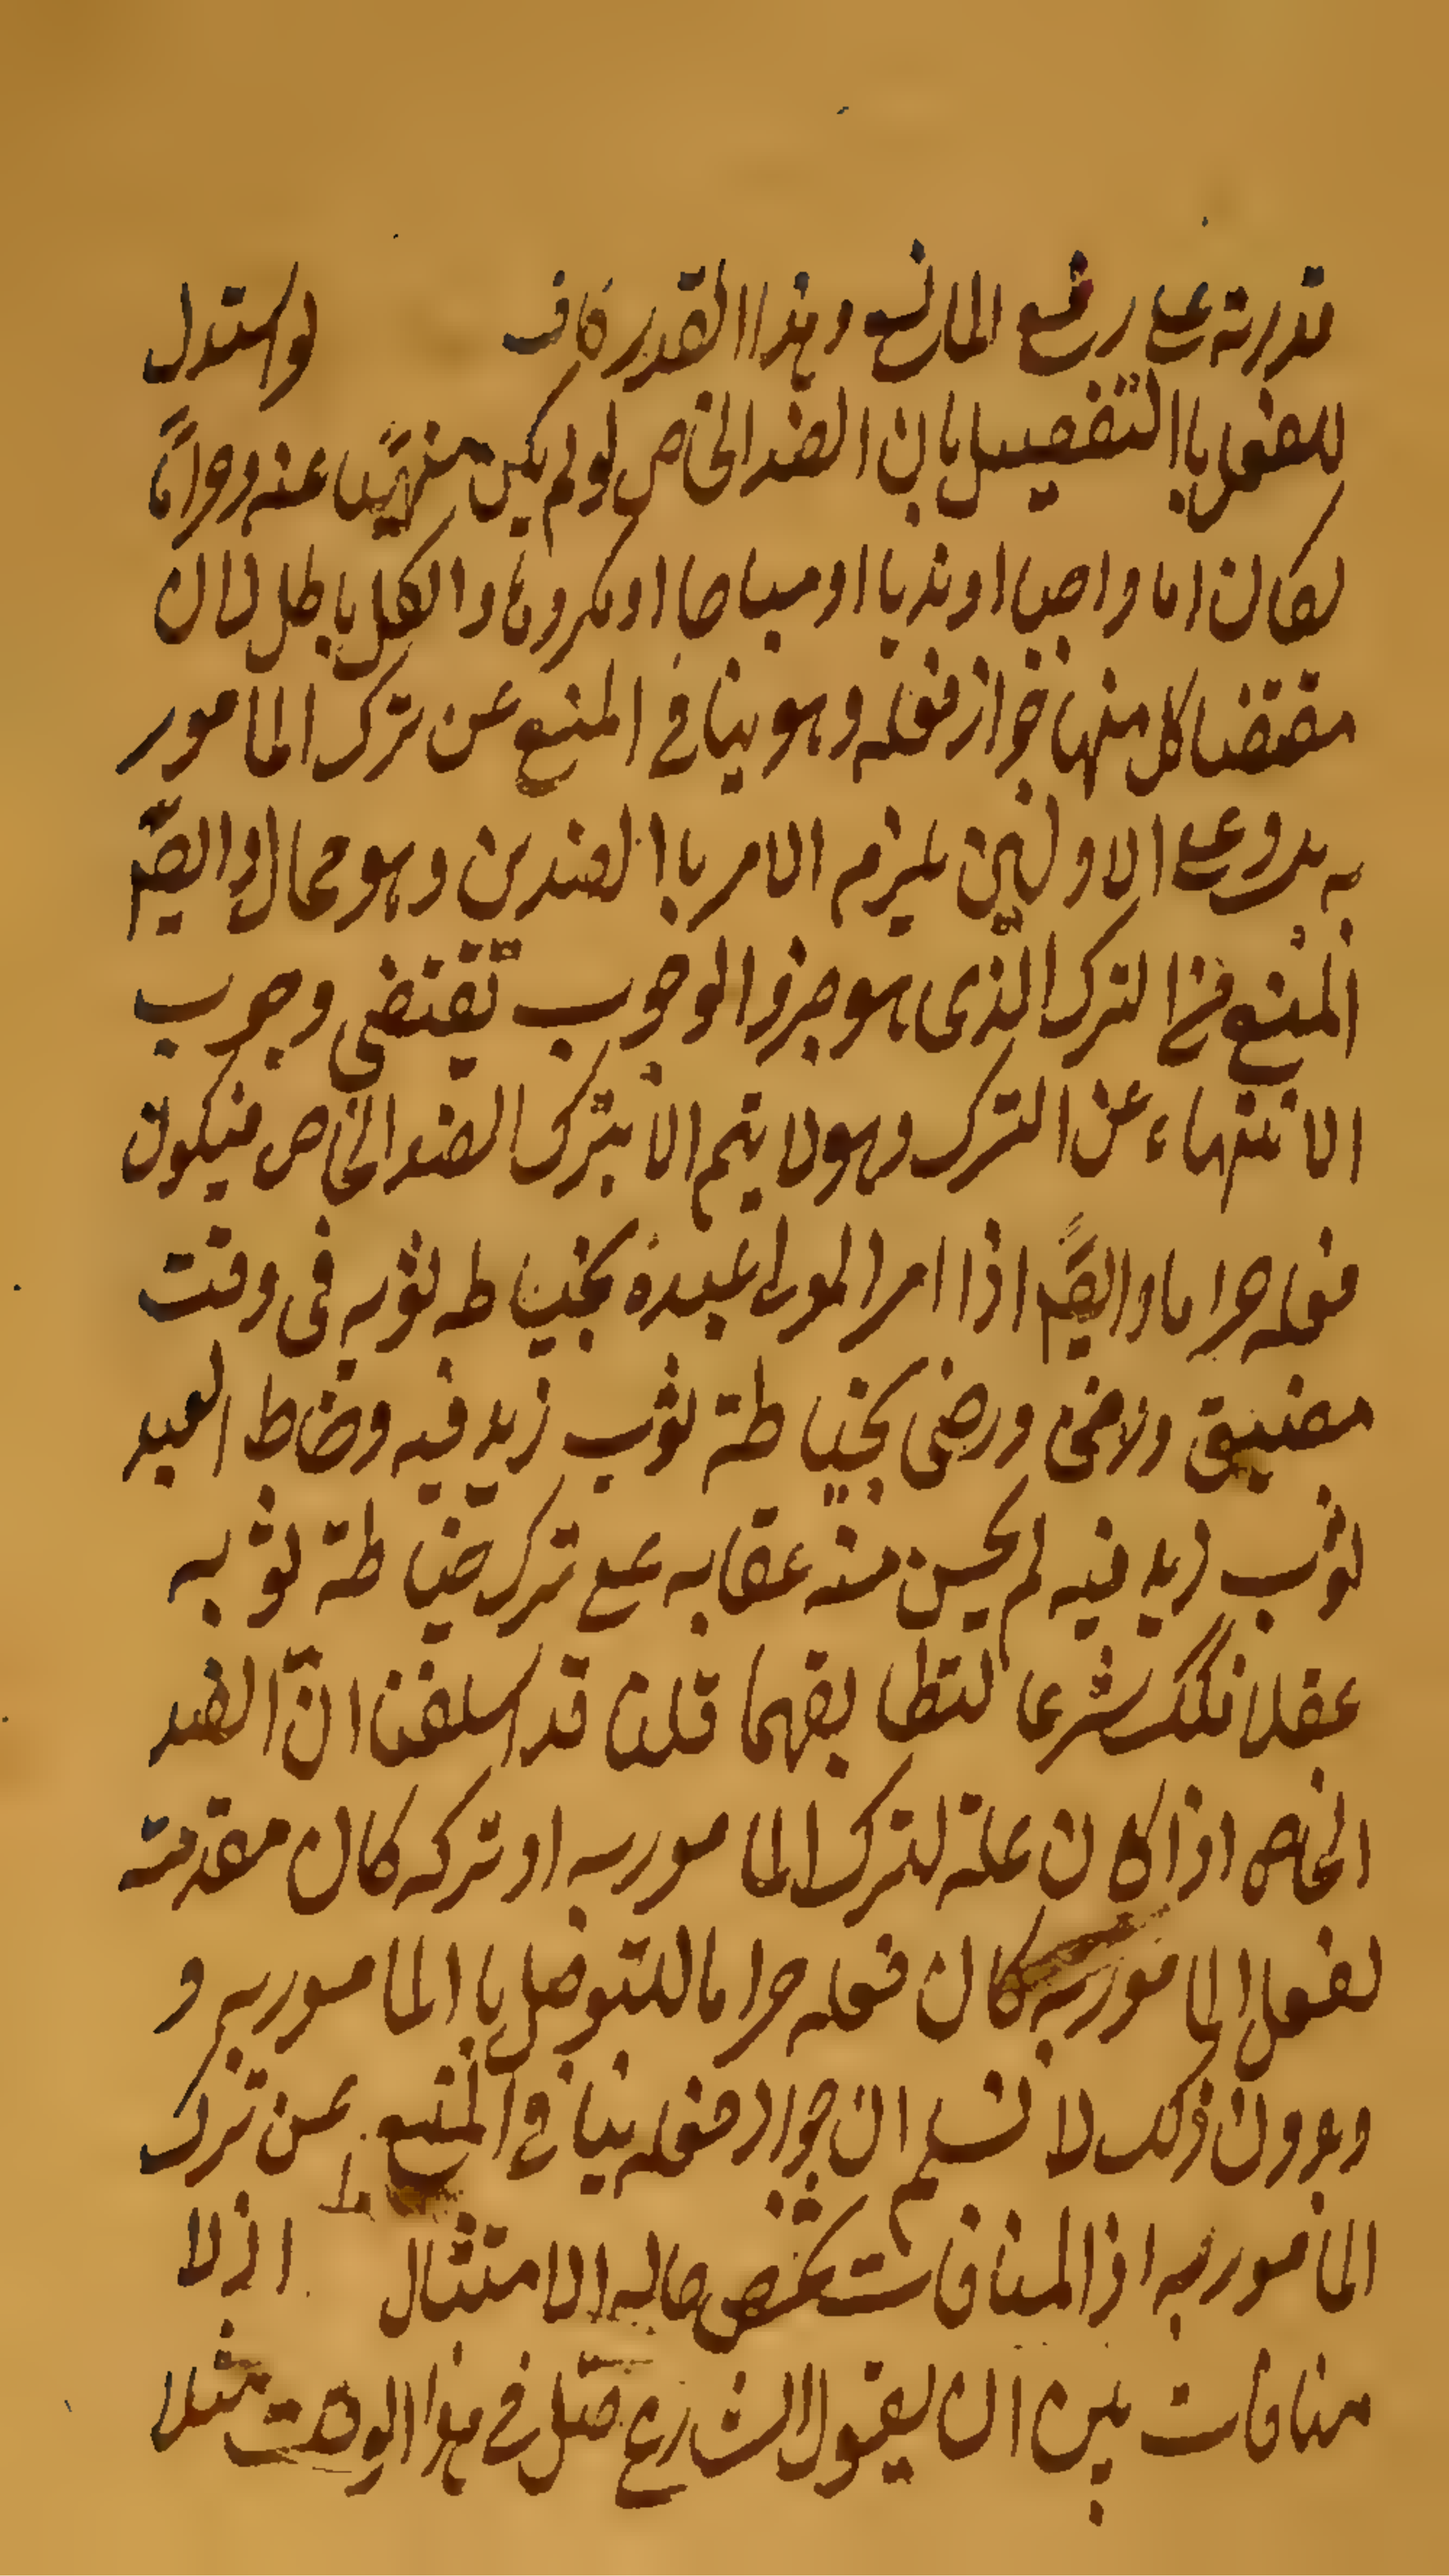 قدرته على رفع المانع وهذا القدر كاف لو استدل
للمفعل باالتفصيل بان الضد الخاص لو لم يكن منهيا عنه وحراما
لكان اما واجبا او ندبا او مباحا او مكروها والكل باطل لان
مقتضا كل منها جواز فعله وهو ينافي المنع عن ترك المامور
به بدو على الاولين يلزم الامر باالضدين وهو محال وايضا
المنع من الترك الذى هو جزو الوجوب تقتضى وجوب
الانتهاء عن الترك وهو لا يتم الا بترك الضد الخاص فيكون
فعله حراما وايضا اذا امر المولى عبده بخياطه ثوبه فى وقت
مضيق ورضى بخياطة ثوب زيد فيه وخاط العبد
ثوب زيد فيه لم يحسن منه عقابه على ترك خياطة ثوبه
عقلا فكك شرعا لتطابقهما قلنا قد اسلفنا انّ الضد
الخاص اذا كان علة لترك المامور به او تركه كان مقدمته
لفعل المامور به كان فعله حراما للتوصل باالمامور به و
وبدون ذلك لا نسلم ان جواز فعله ينافي المنع عن ترك
المامور به اذ المنافات تخص حاله الامتثال اذ لا
منافات بين ان يقول الشارع صل في هذا الوقت مثلا